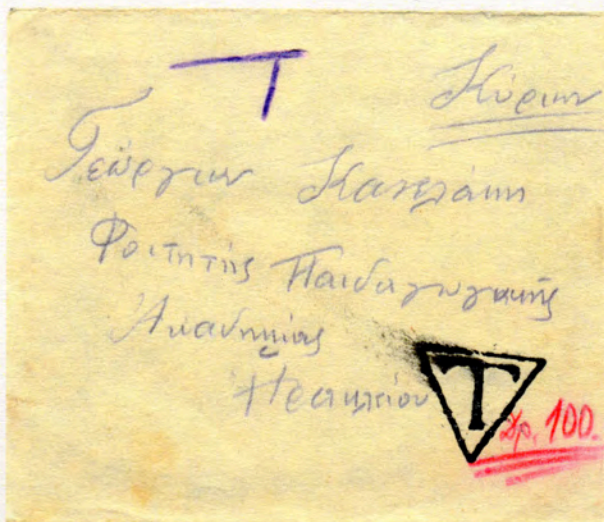 Τ
Κύριον
Γεώργιον Κανελάκη
Φοιτητής Παιδαγωγικής
Ἀκαδημίας
Ἡρακλείου
T
Δρ. 100.